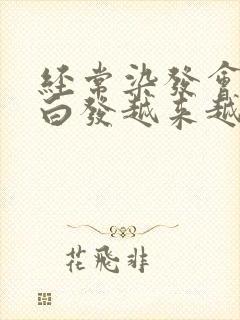 經常染發會
白發越來越
花飛非